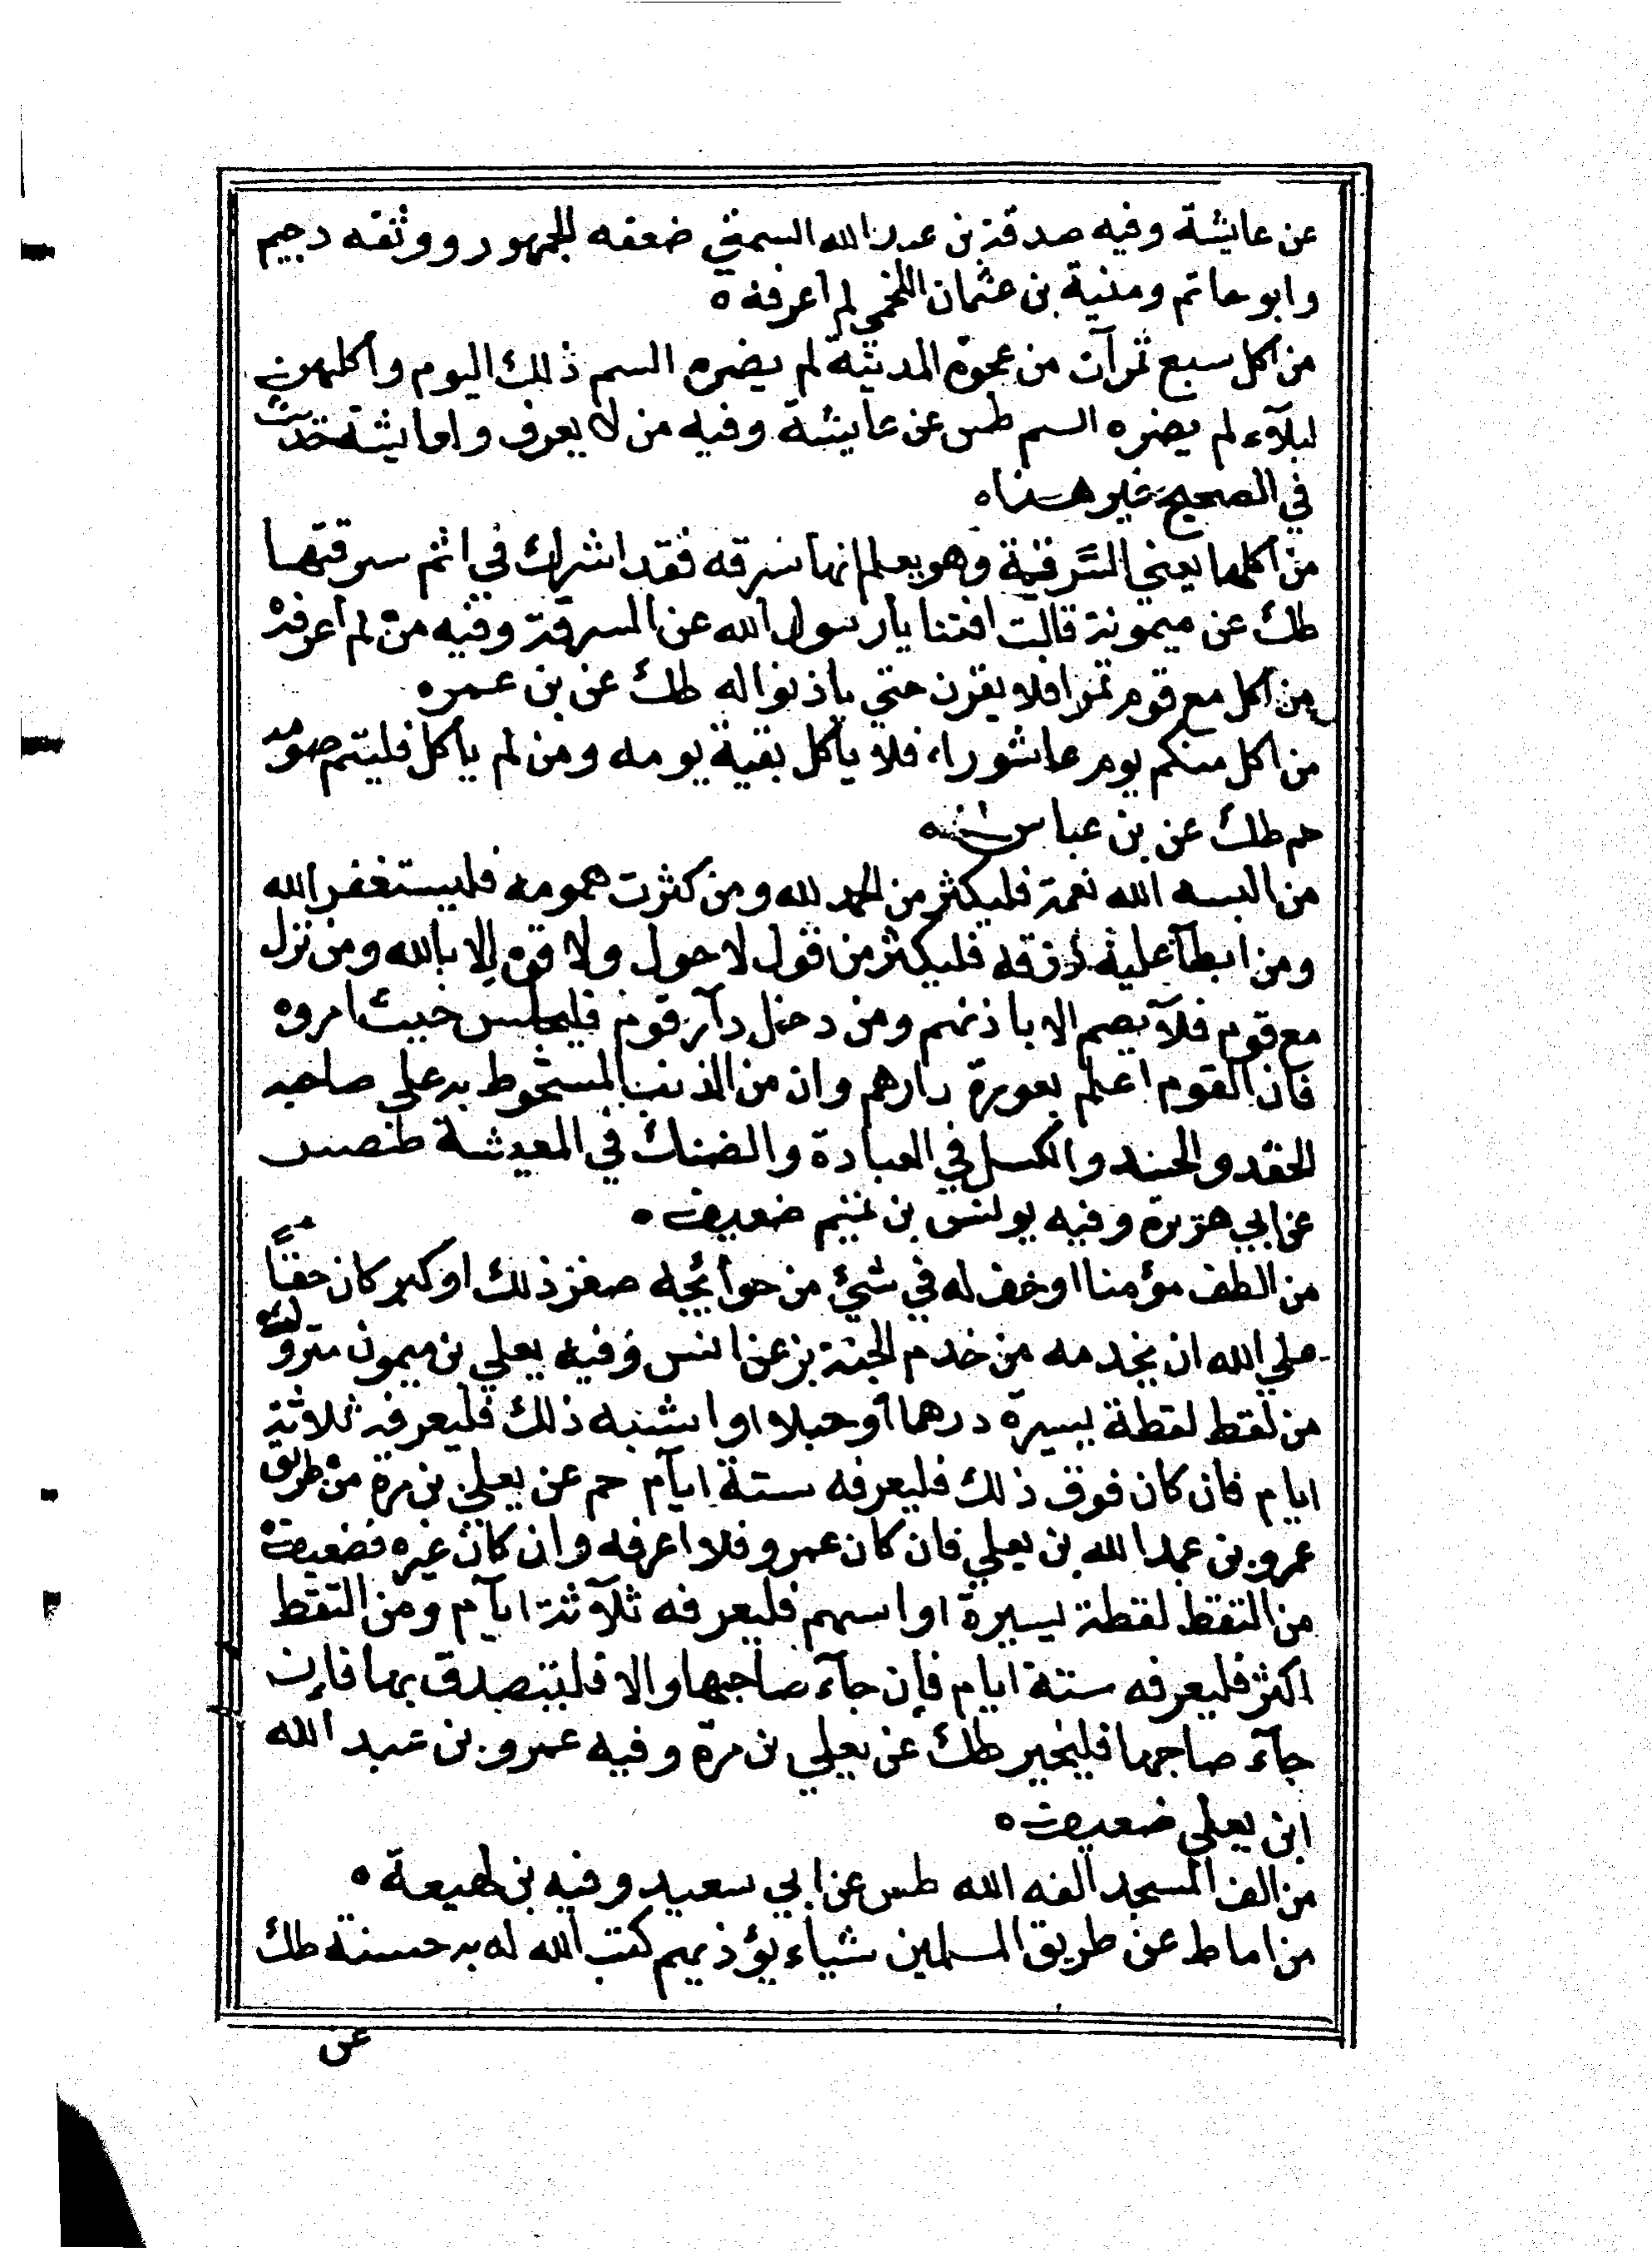 عن عايشة وفيه صدقة بن عبد الله السمين ضعفه الجمهور ووثقه دحيم
وابو حاتم ومنبه بن عثمان اللخمي لم اعرفه ه
من اكل سبع تمرآت من عجوة المدينة لم يضره السم ذلك اليوم وأكلهن
ليلآء لم يضره السم طس عن عايشة وفيه من لا يعرف ولعايشة حديث
في الصحيح غير هذا ه
من اكلها يعني السرقة وهو يعلم انها سرقه فقد اشرك في اثم سرقتها
طك عن ميمونة قالت افتنا يا رسول الله عن السرقة وفيه من لم اعرفه
من اكل مع قوم تمرا فلا يقرن حتي ياذنوا له طك عن بن عمره
من اكل منكم يوم عاشوراء فلا يأكل بقية يومه ومن لم يأكل فليتم صومه
حم طك عن بن عباس
من البسه الله نعمة فليكثر من الحمد لله ومن كثرت همومه فليستغفر الله
ومن ابطآ عليه رزقه فليكثر من قول لا حول ولا قوة إلا بالله ومن نزل
مع قوم فلآ يصم الا باذنهم ومن دخل دآر قوم فليجلس حيث امروه
فان القوم اعلم بعورة دارهم وان من الذنب المسخوط به علي صاحبه
الحقد والحسد والكسل في العبادة والضنك في المعيشة طصس
عن ابي هريرة وفيه يونس بن تميم ضعيف ه
من الطف مؤمنا اوخف له في شئ من حوآئجه صغر ذلك او كبر كان حقاً
علي الله ان يخدمه من خدم الجنة بز عن انس وفيه يعلي بن ميمون متروك
من لقط لقطة يسيرة درهما أو حبلا او اشبه ذلك فليعرفه ثلاثة
ايام فان كان فوق ذلك فليعرفه ستة ايآم حم عن يعلي بن مرة من طريق
عمرو بن عبد الله بن يعلي فان كان عمرو فلا اعرفه وان كان غيره فضعيف
من التقط لقطة يسيرة او اسهم فليعرفه ثلآثة ايآم ومن التقط
اكثر فليعرفه ستة ايام فإن جآء صاحبها والا فليتصدق بها فإن
جآء صاحبها فليخير طك عن يعلي بن مرة وفيه عمرو بن عبد الله
ابن يعلي ضعيف ه
من الف المسجد الفه الله طس عن ابي سعيد وفيه بن لهيعة ه
من اماط عن طريق المسلمين شياء يؤذيهم كتب الله له به حسنة طك
عن